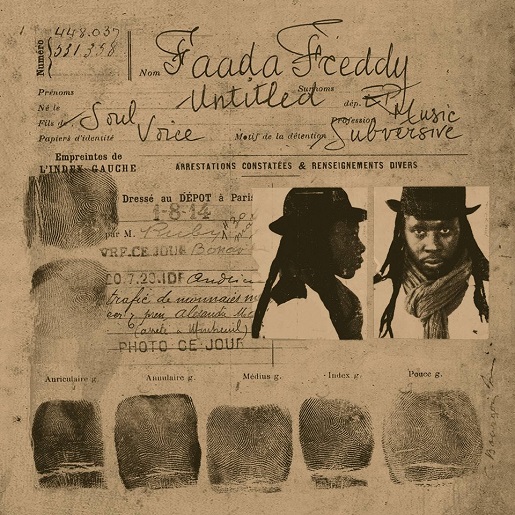 448.037
Numéro
531.358
Nom Faada Freddy
Prénoms Untitled Surnoms
Né le dép. EP
Fils de Soul Profession Music
Papiers d'identité Voice Motif de la détention Subversive
Empreintes de
L'INDEX GAUCHE
ARRESTATIONS CONSTATÉES & RENSEIGNEMENTS DIVERS
Dressé au DÉPÔT à Paris
1-8-14
par M.
VRF.CE JOUR
trafic de monnaies
PHOTO CE JOUR
Auriculaire g. Annulaire g. Médius g. Index g. Pouce g.